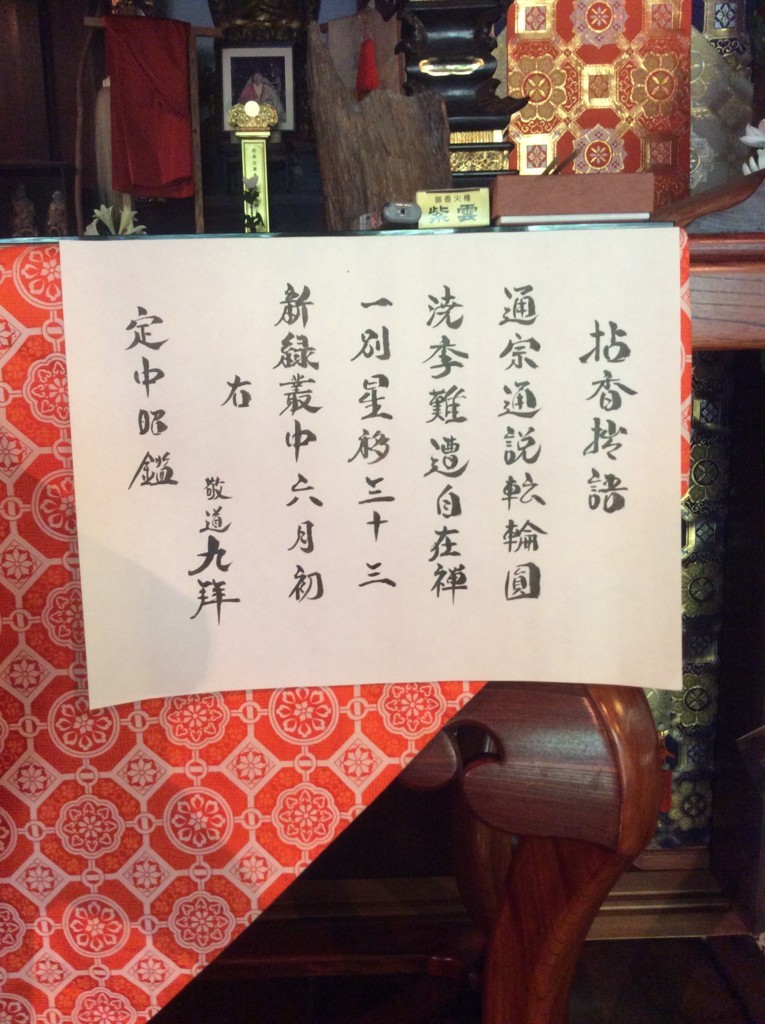 拈香拙語
通宗通説転輪圓
澆季難遭自在禅
一別星移三十三
新緑叢中六月初
右
敬道九拜
定中昭鑑
紫雲